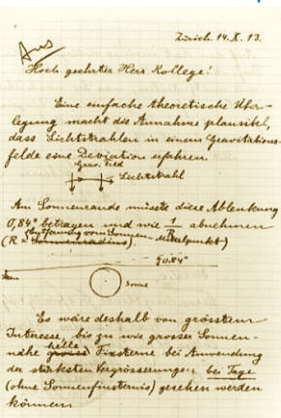 Zürich. 14. X. 13.
Hoch geehrter Herr Kollege!
Eine einfache theoretische Über-
legung macht die Annahme plausibel,
dass Lichtstrahlen in einem Gravitations-
felde eine Deviation erfahren.
Grav. Feld
Lichtstrahl
Am Sonnenrande müsste diese Ablenkung
0,84" betragen und wie 1/R abnehmen
(R = Sonnenradius)
Entfernung vom Sonnen-Mittelpunkt)
0.84"
Sonne
Es wäre deshalb von grösstem
Interesse, bis zu wie grosser Sonnen-
nähe grosse helle Fixsterne bei Anwendung
der stärksten Vergrösserungen bei Tage
(ohne Sonnenfinsternis) gesehen werden
können.